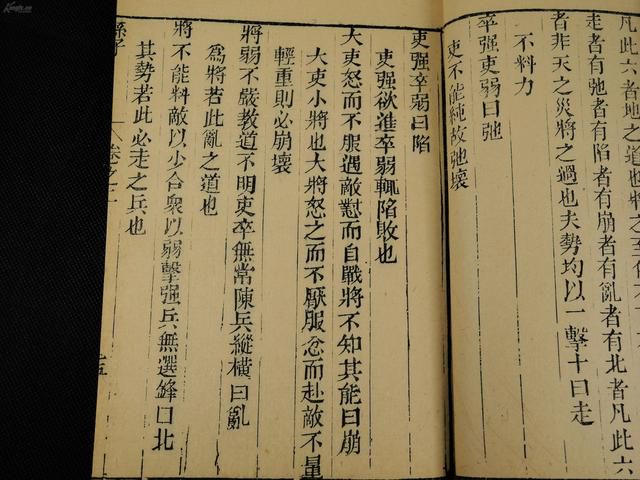 凡此六者地之至
走者有弛者有陷者有崩者有亂者有北者凡此六
者非天之災將之過也夫勢均以一擊十曰走
不料力
卒强吏弱曰弛
吏不能純故弛壞
吏强卒弱曰陷
吏强欲進卒弱輒陷敗也
大吏怒而不服遇敵懟而自戰將不知其能曰崩
大吏小將也大將怒之而不厭服忿而赴敵不量
輕重則必崩壞
將弱不嚴教道不明吏卒無常陳兵縱橫曰亂
爲將若此亂之道也
將不能料敵以少合衆以弱擊强兵無選鋒曰北
其勢若此必走之兵也
孫子
卷之
十五